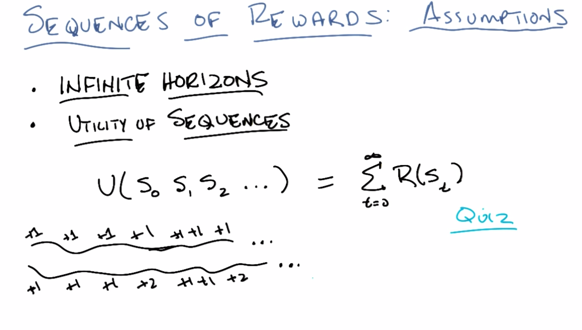 SEQUENCES OF REWARDS: ASSUMPTIONS
• INFINITE HORIZONS
• UTILITY OF SEQUENCES
U(S₀ S₁ S₂ ...) = ∑_{t=0}^{∞} R(S_t)
Quiz
+1 +1 +1 +1 +1 +1 +1 ...
+1 +1 +1 +2 +1 +1 +2 ...